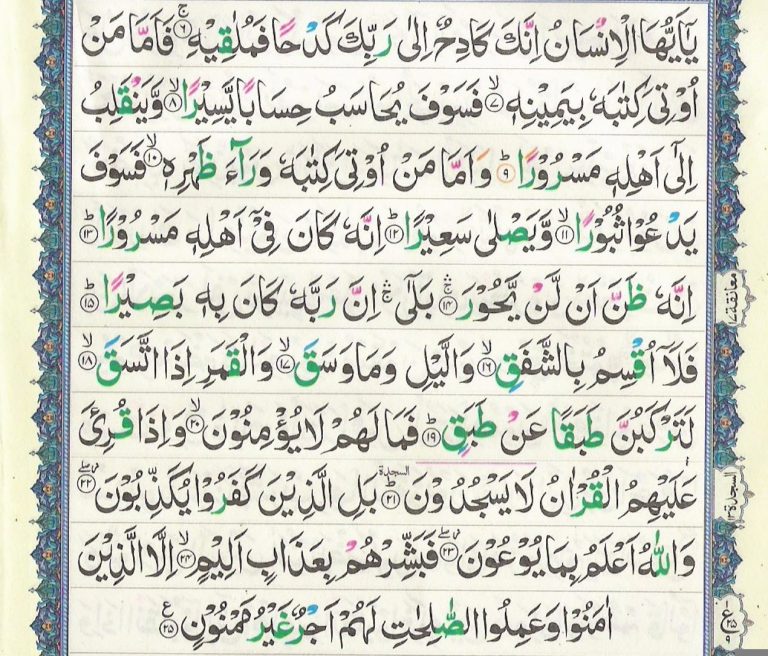 يٰۤاَيُّهَا الْاِنْسَانُ اِنَّكَ كَادِحٌ اِلٰى رَبِّكَ كَدْحًا فَمُلٰقِيْهِ ۚ﴿۶﴾ فَاَمَّا مَنْ
اُوْتِىَ كِتٰبَهٗ بِيَمِيْنِهٖ ۙ﴿۷﴾ فَسَوْفَ يُحَاسَبُ حِسَابًا يَّسِيْرًا ۙ﴿۸﴾ وَّيَنْقَلِبُ
اِلٰٓى اَهْلِهٖ مَسْرُوْرًا ؕ﴿۹﴾ وَاَمَّا مَنْ اُوْتِىَ كِتٰبَهٗ وَرَآءَ ظَهْرِهٖ ۙ﴿۱۰﴾ فَسَوْفَ
يَدْعُوْا ثُبُوْرًا ۙ﴿۱۱﴾ وَّيَصْلٰى سَعِيْرًا ؕ﴿۱۲﴾ اِنَّهٗ كَانَ فِىْۤ اَهْلِهٖ مَسْرُوْرًا ؕ﴿۱۳﴾
اِنَّهٗ ظَنَّ اَنْ لَّنْ يَّحُوْرَ ۛۚ﴿۱۴﴾ بَلٰٓى ۛۚ اِنَّ رَبَّهٗ كَانَ بِهٖ بَصِيْرًا ؕ﴿۱۵﴾
معانقة ۱۷
فَلَاۤ اُقْسِمُ بِالشَّفَقِ ۙ﴿۱۶﴾ وَالَّيْلِ وَمَا وَسَقَ ۙ﴿۱۷﴾ وَالْقَمَرِ اِذَا اتَّسَقَ ۙ﴿۱۸﴾
لَتَرْكَبُنَّ طَبَقًا عَنْ طَبَقٍ ؕ﴿۱۹﴾ فَمَا لَهُمْ لَا يُؤْمِنُوْنَ ۙ﴿۲۰﴾ وَاِذَا قُرِئَ
عَلَيْهِمُ الْقُرْاٰنُ لَا يَسْجُدُوْنَ السجدة ؕ﴿۲۱﴾ بَلِ الَّذِيْنَ كَفَرُوْا يُكَذِّبُوْنَ ﴿۲۲﴾
السجدة ۱۳
وَاللّٰهُ اَعْلَمُ بِمَا يُوْعُوْنَ ﴿۲۳﴾ فَبَشِّرْهُمْ بِعَذَابٍ اَلِيْمٍ ۙ﴿۲۴﴾ اِلَّا الَّذِيْنَ
اٰمَنُوْا وَعَمِلُوا الصّٰلِحٰتِ لَهُمْ اَجْرٌ غَيْرُ مَمْنُوْنٍ ﴿۲۵﴾ ع